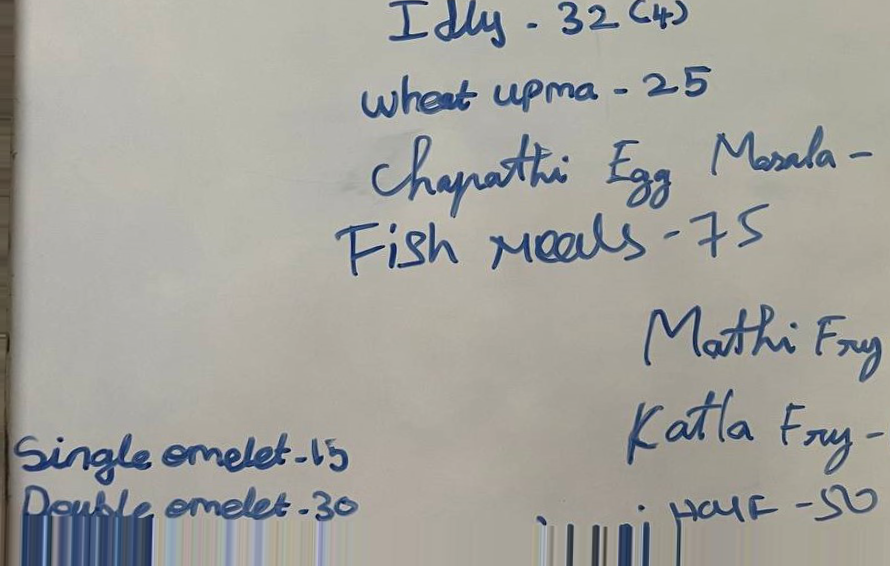 Idly - 32 (4)
wheat upma - 25
Chapathi Egg Masala -
Fish meals - 75
Mathi Fry
Katla Fry -
Single omelet - 15
Double omelet - 30
Half - 50